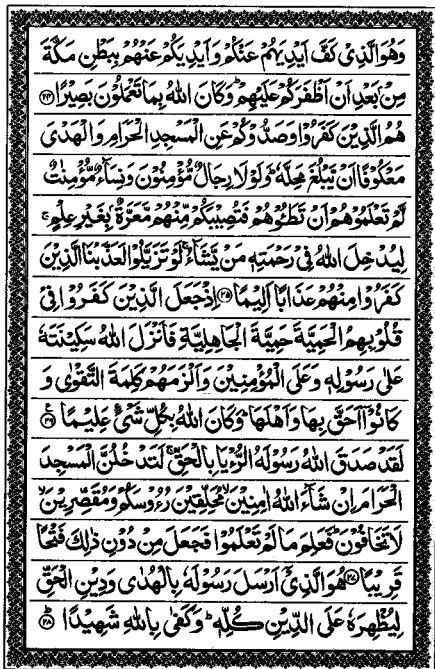 وَهُوَ الَّذِیْ كَفَّ اَیْدِیَهُمْ عَنْكُمْ وَ اَیْدِیَكُمْ عَنْهُمْ بِبَطْنِ مَكَّةَ
مِنْۢ بَعْدِ اَنْ اَظْفَرَكُمْ عَلَیْهِمْ ؕ وَكَانَ اللّٰهُ بِمَا تَعْمَلُوْنَ بَصِیْرًا ﴿۲۴﴾
هُمُ الَّذِیْنَ كَفَرُوْا وَصَدُّوْكُمْ عَنِ الْمَسْجِدِ الْحَرَامِ وَالْهَدْیَ
مَعْكُوْفًا اَنْ یَّبْلُغَ مَحِلَّهٗ ؕ وَلَوْ لَا رِجَالٌ مُّؤْمِنُوْنَ وَنِسَآءٌ مُّؤْمِنٰتٌ
لَّمْ تَعْلَمُوْهُمْ اَنْ تَطَئُوْهُمْ فَتُصِیْبَكُمْ مِّنْهُمْ مَّعَرَّةٌۢ بِغَیْرِ عِلْمٍ ۚ
لِیُدْخِلَ اللّٰهُ فِیْ رَحْمَتِهٖ مَنْ یَّشَآءُ ۚ لَوْ تَزَیَّلُوْا لَعَذَّبْنَا الَّذِیْنَ
كَفَرُوْا مِنْهُمْ عَذَابًا اَلِیْمًا ﴿۲۵﴾ اِذْ جَعَلَ الَّذِیْنَ كَفَرُوْا فِیْ
قُلُوْبِهِمُ الْحَمِیَّةَ حَمِیَّةَ الْجَاهِلِیَّةِ فَاَنْزَلَ اللّٰهُ سَكِیْنَتَهٗ
عَلٰی رَسُوْلِهٖ وَعَلَی الْمُؤْمِنِیْنَ وَاَلْزَمَهُمْ كَلِمَةَ التَّقْوٰی وَ
كَانُوْۤا اَحَقَّ بِهَا وَاَهْلَهَا ؕ وَكَانَ اللّٰهُ بِكُلِّ شَیْءٍ عَلِیْمًا ﴿۲۶﴾ ع
لَقَدْ صَدَقَ اللّٰهُ رَسُوْلَهُ الرُّءْیَا بِالْحَقِّ ۚ لَتَدْخُلُنَّ الْمَسْجِدَ
الْحَرَامَ اِنْ شَآءَ اللّٰهُ اٰمِنِیْنَ ۙ مُحَلِّقِیْنَ رُءُوْسَكُمْ وَمُقَصِّرِیْنَ ۙ
لَا تَخَافُوْنَ ؕ فَعَلِمَ مَا لَمْ تَعْلَمُوْا فَجَعَلَ مِنْ دُوْنِ ذٰلِكَ فَتْحًا
قَرِیْبًا ﴿۲۷﴾ هُوَ الَّذِیْۤ اَرْسَلَ رَسُوْلَهٗ بِالْهُدٰی وَدِیْنِ الْحَقِّ
لِیُظْهِرَهٗ عَلَی الدِّیْنِ كُلِّهٖ ؕ وَكَفٰی بِاللّٰهِ شَهِیْدًا ﴿۲۸﴾ ؕ